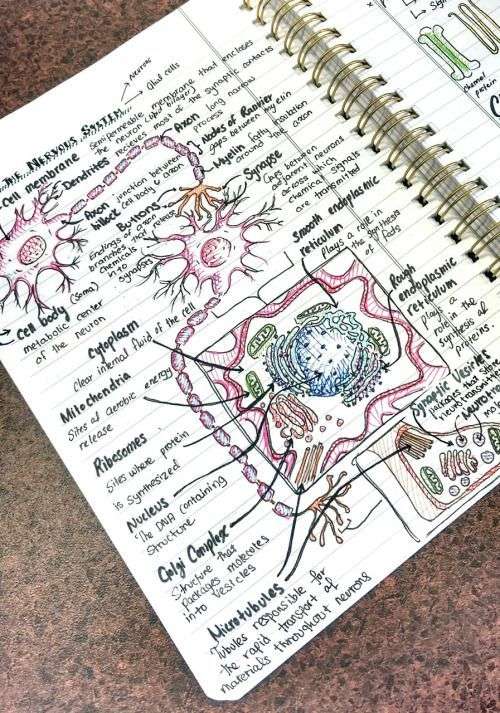 THE NERVOUS SYSTEM
neurons
Glial cells
Cell membrane
Semipermeable membrane that encloses
the neuron (lipid bilayer)
Dendrites
recieves most of the synaptic contacts
Axon
long narrow
process
Nodes of Ranvier
gaps between myelin
Myelin
Fatty insulation
around the axon
Axon
hillock
junction between
cell body & axon
Buttons
Endings of axon
branches that release
chemicals
into
synapses
Synapse
Gaps between
adjacent neurons
across which
chemical signals
are transmitted
Cell body (soma)
metabolic center
of the neuron
Cytoplasm
Clear internal fluid of the cell
Mitochondria
Sites of aerobic energy
release
Ribosomes
Sites where protein
is synthesized
Nucleus
The DNA containing
Structure
Golgi Complex
Structure that
packages molecules
into vesicles
Microtubules
Tubules responsible for
the rapid transport of
materials throughout neurons
Smooth endoplasmic
reticulum
plays a role in
the synthesis
of fats
Rough
endoplasmic
reticulum
plays a
role in the
synthesis of
proteins
Synaptic Vesicles
packages that store
neurotransmitters
channel